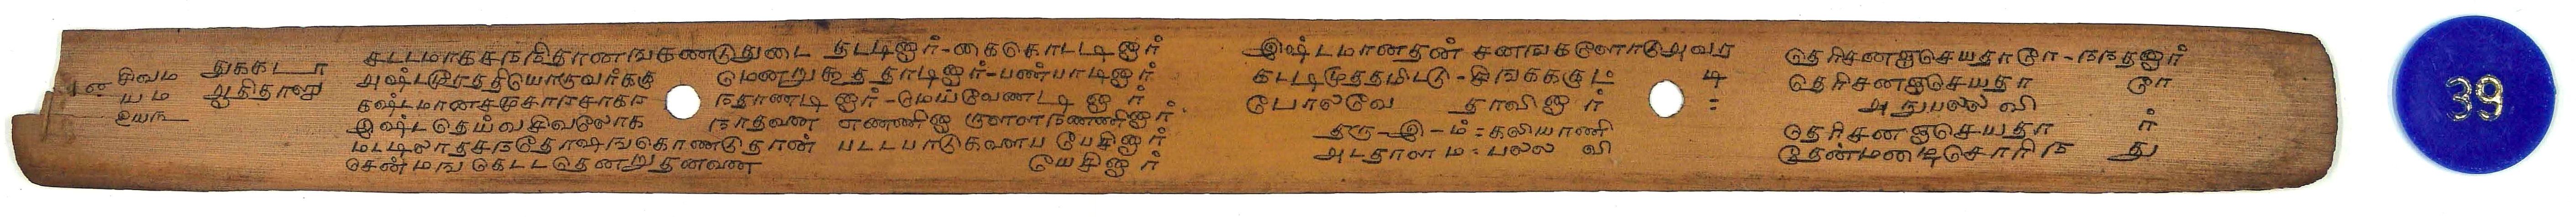 சிவம
யம
துககடா
ஆதிதாளு
சட்டமாகச நநிதானஙகணடுதுடை தடடினார்-கைகொடடினார்
அஷ்டமூரத்தியொருவர்க்கு மெனறுகூத தாடினார்-பண்பாடினார்
கஷ்டமானசமுசாரசாகர நதாணடி னார்-மெய்வேணடி னார்
இஷ்டதெய்வசிவலோக நாதனை எணணினா ருளளநணணினார்
மடடிலாதசநதோஷஙகொணடுதான் படடபாடுகளைப பேசினார்
சென்மங கெடடதெனறுதனவண யேசினார்
இஷ்டமானதன் சனஙகளோடுஅவர
கடடிமுததமிடடு-சிஙகககுட டி
போலவே தாவினார் :
தரு-இ-ம் : கலியாணி
அடதாளம : பலல வி
தெரிசனஞசெயதாரே-நநதனார்
தெரிசனஞசெயதா ரே
அநுபலல வி
தெரிசனஞசெயதா ர்
தேன்மணடிசொரிந து
39